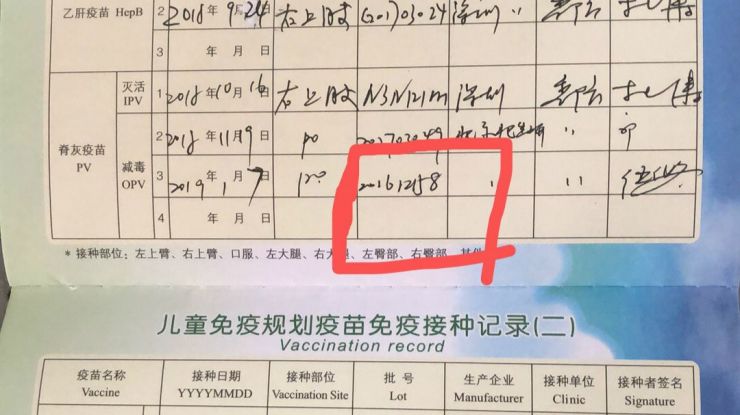 乙肝疫苗 HepB 2 2018年9月24日 右上臂 G201703024 深圳 〃
3 年 月 日
脊灰疫苗 PV
灭活 IPV 1 2018年10月16日 右上臂 N3N121M 深圳
减毒 OPV
2 2018年11月9日 po 201703049 〃
3 2019年1月7日 po 201612158 〃 〃
4 年 月 日
* 接种部位：左上臂、右上臂、口服、左大腿、右大腿、左臀部、右臀部、其他
儿童免疫规划疫苗免疫接种记录(二)
Vaccination record
疫苗名称 接种日期 接种部位 批 号 生产企业 接种单位 接种者签名
Vaccine YYYYMMDD Vaccination Site Lot Manufacturer Clinic Signature